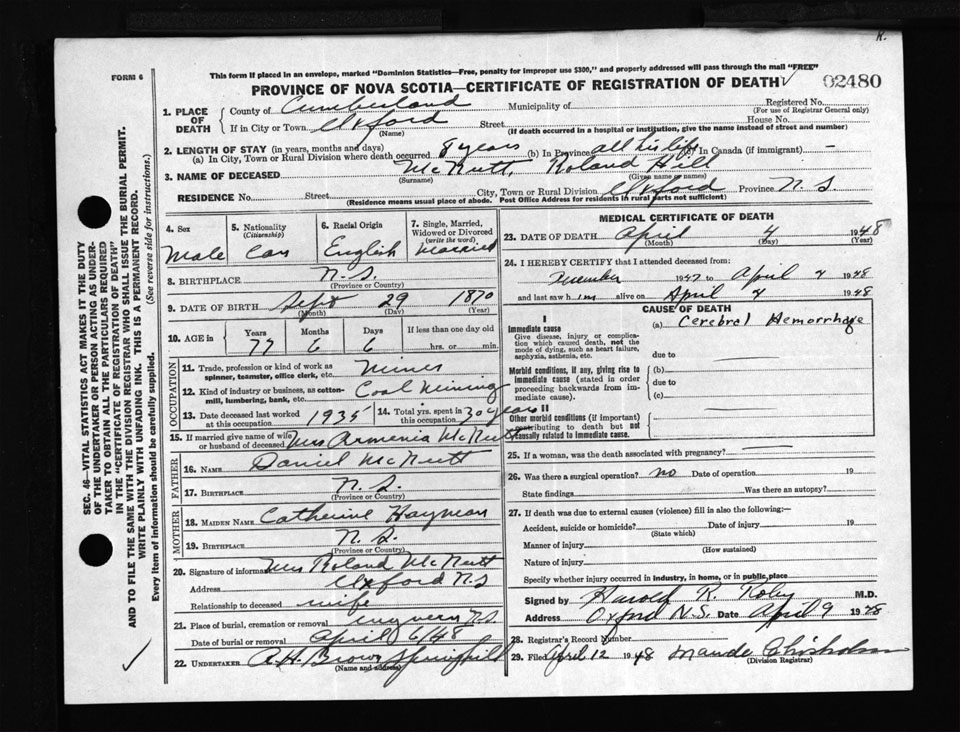 K.
FORM 6
This form if placed in an envelope, marked "Dominion Statistics—Free, penalty for improper use $300," and properly addressed will pass through the mail "FREE"
PROVINCE OF NOVA SCOTIA—CERTIFICATE OF REGISTRATION OF DEATH
02480
SEC. 48—VITAL STATISTICS ACT MAKES IT THE DUTY
OF THE UNDERTAKER OR PERSON ACTING AS UNDER-
TAKER TO OBTAIN ALL THE PARTICULARS REQUIRED
IN THE "CERTIFICATE OF REGISTRATION OF DEATH"
AND TO FILE THE SAME WITH THE DIVISION REGISTRAR WHO SHALL ISSUE THE BURIAL PERMIT.
WRITE PLAINLY WITH UNFADING INK. THIS IS A PERMANENT RECORD.
Every item of information should be carefully supplied. (See reverse side for instructions.)
1. PLACE OF DEATH
County of Cumberland Municipality of Registered No.
(For use of Registrar General only)
If in City or Town Oxford Street House No.
(Name) (If death occurred in a hospital or institution, give the name instead of street and number)
2. LENGTH OF STAY (in years, months and days)
(a) In City, Town or Rural Division where death occurred 8 years (b) In Province all his life (c) In Canada (if immigrant) —
3. NAME OF DECEASED McNutt, Roland Hill
(Surname) (Given name or names)
RESIDENCE No. Street City, Town or Rural Division Oxford Province N.S.
(Residence means usual place of abode. Post Office Address for residents in rural parts not sufficient)
4. Sex Male
5. Nationality (Citizenship) Can
6. Racial Origin English
7. Single, Married, Widowed or Divorced (write the word) Married
8. BIRTHPLACE N.S.
(Province or Country)
9. DATE OF BIRTH Sept 29 1870
(Month) (Day) (Year)
10. AGE in Years Months Days If less than one day old
77 6 6 hrs. or min.
OCCUPATION
11. Trade, profession or kind of work as spinner, teamster, office clerk, etc. Miner
12. Kind of industry or business, as cotton-mill, lumbering, bank, etc. Coal Mining
13. Date deceased last worked at this occupation 1935
14. Total yrs. spent in this occupation 30 years
15. If married give name of wife or husband of deceased Mrs Armenia McNutt
FATHER
16. NAME Daniel McNutt
17. BIRTHPLACE N.S.
(Province or Country)
MOTHER
18. MAIDEN NAME Catherine Hayman
19. BIRTHPLACE N.S.
(Province or Country)
20. Signature of informant Mrs Roland McNutt
Address Oxford N.S
Relationship to deceased wife
21. Place of burial, cremation or removal N.S.
Date of burial or removal April 6/48
22. UNDERTAKER A.H. Brown Springhill
(Name and address)
MEDICAL CERTIFICATE OF DEATH
23. DATE OF DEATH April 4 1948
(Month) (Day) (Year)
24. I HEREBY CERTIFY that I attended deceased from:
December 1947 to April 4 1948
and last saw him alive on April 4 1948
CAUSE OF DEATH
I
Immediate cause
Give disease, injury or complication which caused death, not the mode of dying, such as heart failure, asphyxia, asthenia, etc.
(a) Cerebral Hemorrhage
due to
Morbid conditions, if any, giving rise to immediate cause (stated in order proceeding backwards from immediate cause).
(b)
due to
(c)
II
Other morbid conditions (if important) contributing to death but not causally related to immediate cause.
25. If a woman, was the death associated with pregnancy?
26. Was there a surgical operation? no Date of operation 19
State findings Was there an autopsy?
27. If death was due to external causes (violence) fill in also the following:—
Accident, suicide or homicide? Date of injury 19
(State which)
Manner of injury
(How sustained)
Nature of injury
Specify whether injury occurred in industry, in home, or in public place
Signed by Harold R. Roby M.D.
Address Oxford N.S. Date April 9 1948
28. Registrar's Record Number
29. Filed April 12 1948 Maude Chisholm
(Division Registrar)